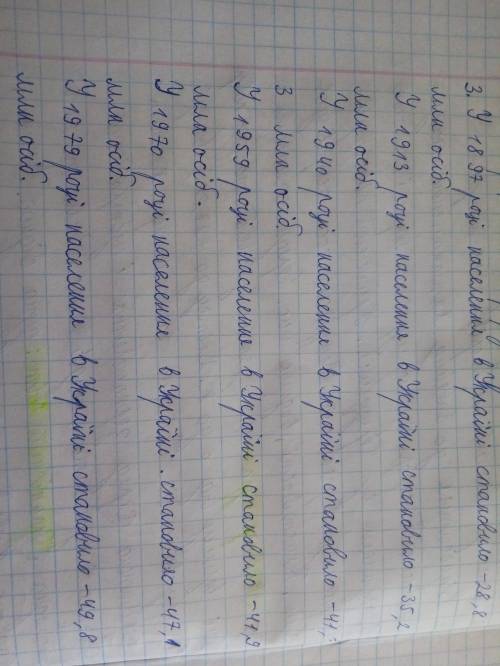 3. У 1897 році населення в Україні становило -28,8
млн осіб.
У 1913 році населення в Україні становило -35,2
млн осіб.
У 1940 році населення в Україні становило -41,
3 млн осіб
У 1959 році населення в Україні становило -41,9
млн осіб.
У 1970 році населення в Україні. становило -47,1
млн осіб.
У 1979 році населення в Україні становило -49,8
млн осіб.